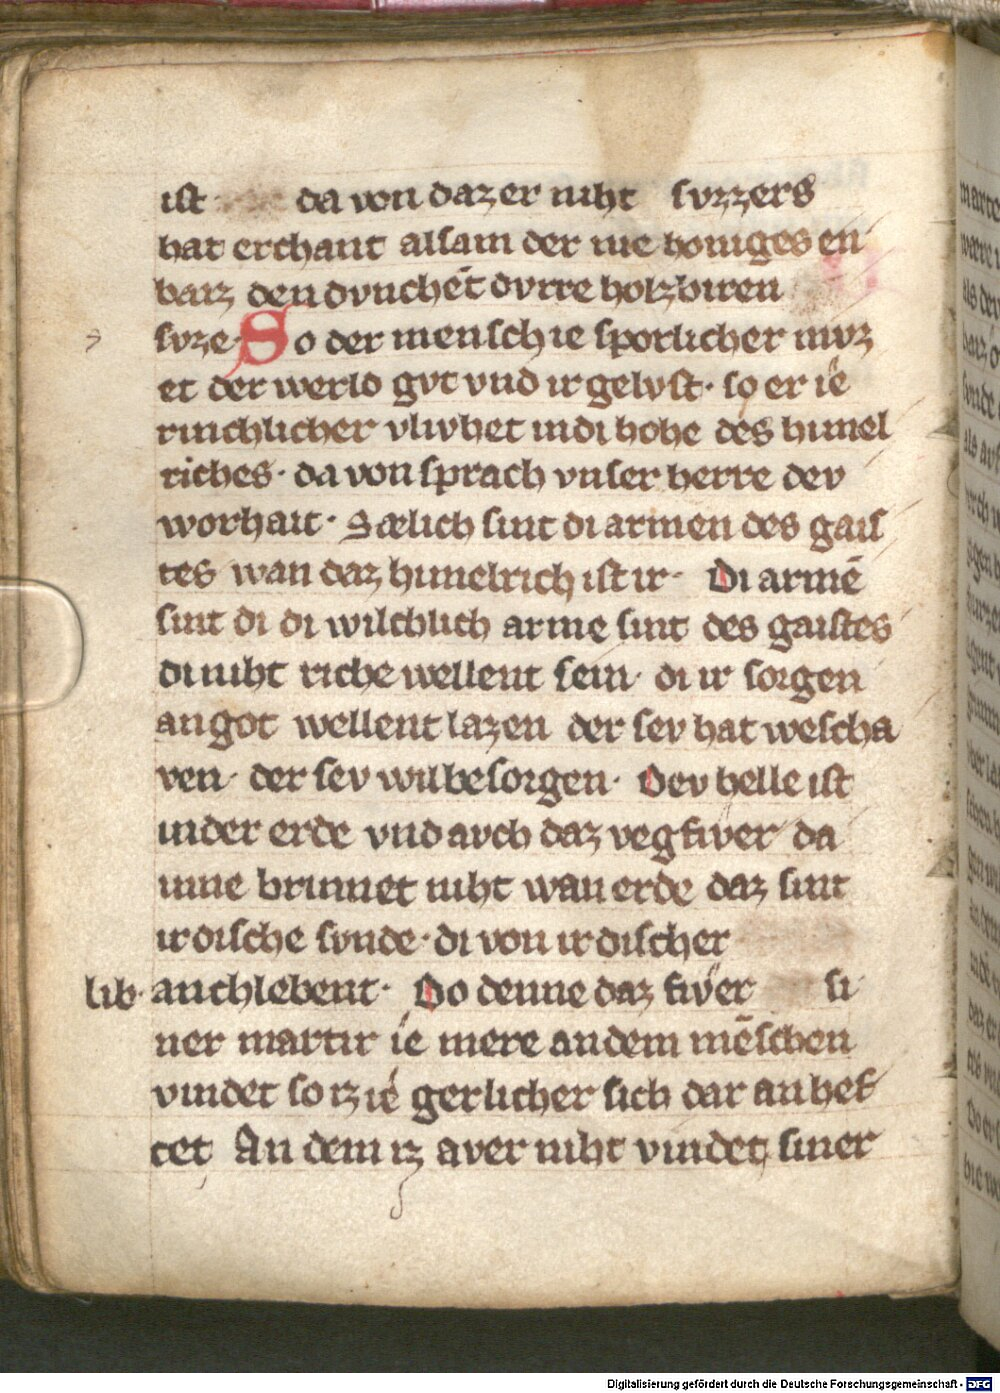 ist da von daz er niht svzzers
hat erchant alsam der nie honiges en
baiz den dvnchēt dvrre holzbiren
svze· So der mensch ie sporlicher nivz
et der werld gvt vnd ir gelvst· so er ie
rinchlicher vlivhet in di hohe des himel
riches· da von sprach vnser herre dev
worhait· Sælich sint di armen des gais
tes wan daz himelrich ist ir· Di armē
sint di di willchlich arme sint des gaistes
di niht riche wellent sein· di ir sorgen
an got wellent lazen der sev hat wescha
ven· der sev wil besorgen· Dev helle ist
in der erde vnd avch daz vegfiver da
inne brinnet niht wan erde daz sint
irdische svnde· di von irdischer
lib· anchlebent· Do denne daz fiver si
ner martir ie mere an dem mēschen
vindet so iz ie gerlicher sich dar an hef
tet An dem iz aver niht vindet siner